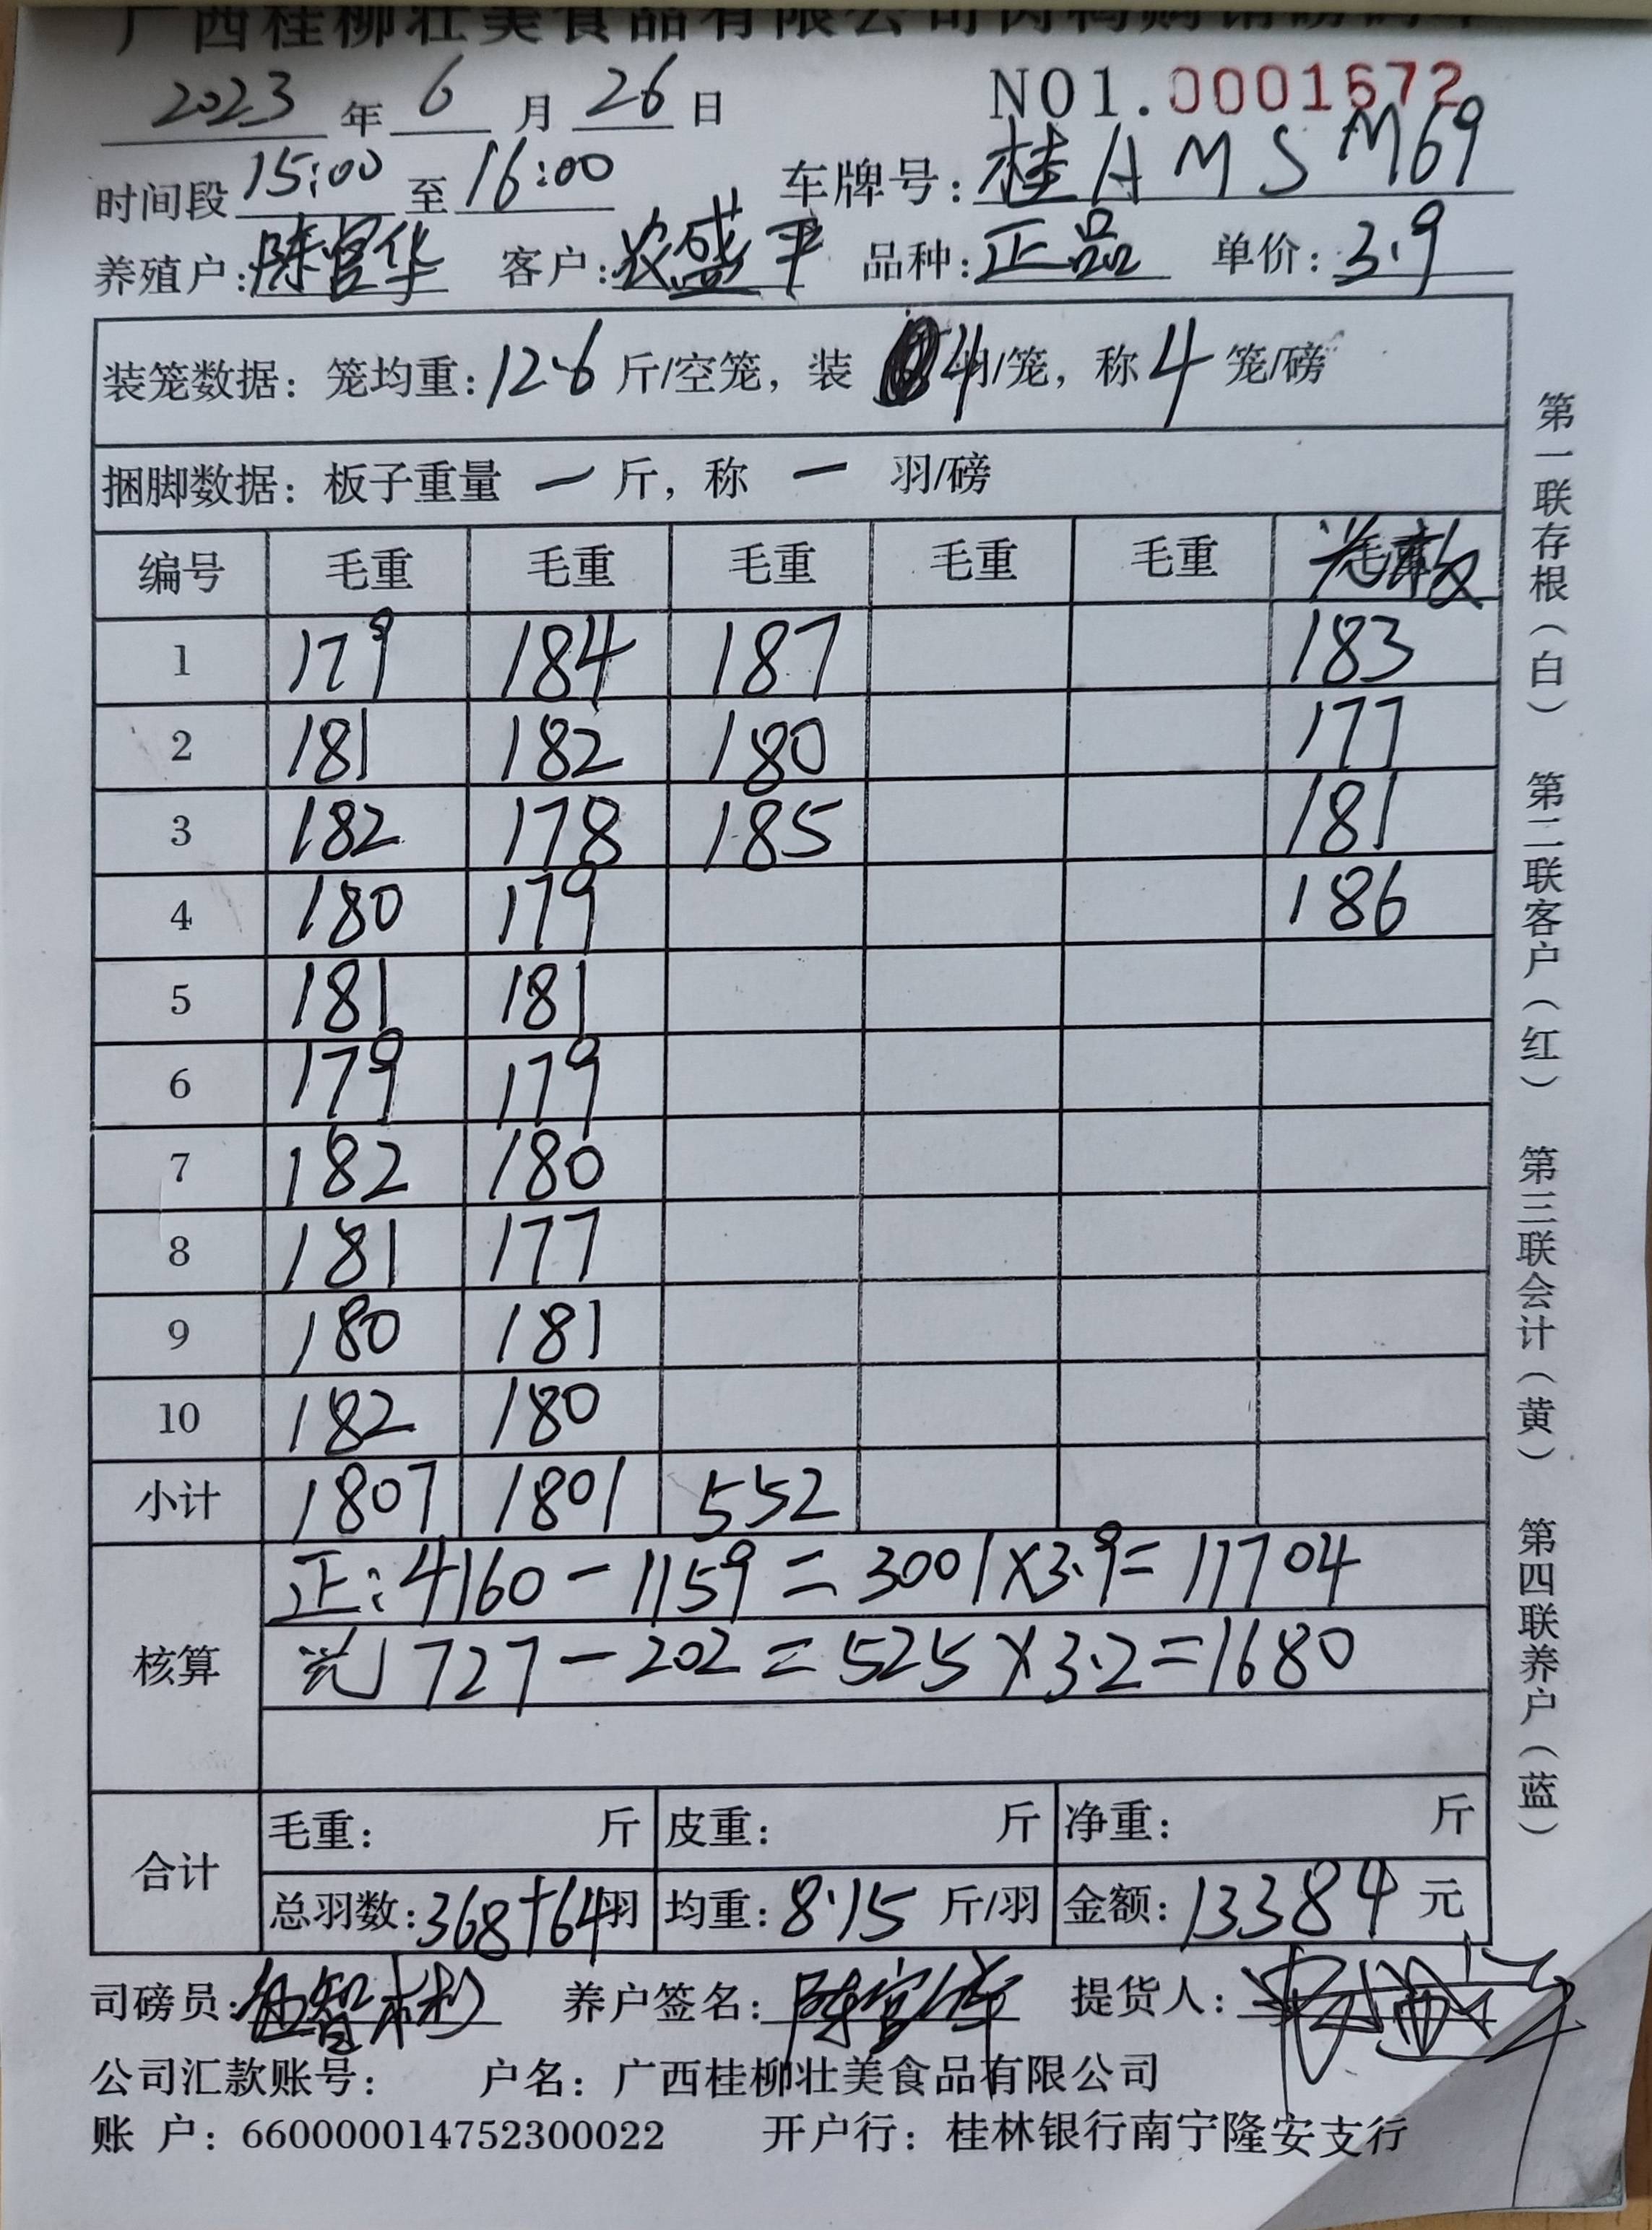 广西桂柳壮美食品有限公司肉鸭购销磅码单
2023 年 6 月 26 日 NO1.0001672
时间段 15:00 至 16:00 车牌号: 桂AMSM69
养殖户: 陈官华 客户: 农盛平 品种: 正品 单价: 3.9
装笼数据: 笼均重: 12.6 斤/空笼, 装 4 羽/笼, 称 4 笼/磅
捆脚数据: 板子重量 一 斤, 称 一 羽/磅
编号 毛重 毛重 毛重 毛重 毛重 毛重
1 179 184 187 183
2 181 182 180 177
3 182 178 185 181
4 180 179 186
5 181 181
6 179 179
7 182 180
8 181 177
9 180 181
10 182 180
小计 1807 1801 552
核算
正: 4160-1159=3001×3.9=11704
727-202=525×3.2=1680
合计
毛重: 斤 皮重: 斤 净重: 斤
总羽数: 368+64羽 均重: 8.15 斤/羽 金额: 13384 元
司磅员: 养户签名: 陈官华 提货人:
公司汇款账号: 户名: 广西桂柳壮美食品有限公司
账 户: 660000014752300022 开户行: 桂林银行南宁隆安支行
第一联存根(白) 第二联客户(红) 第三联会计(黄) 第四联养户(蓝)